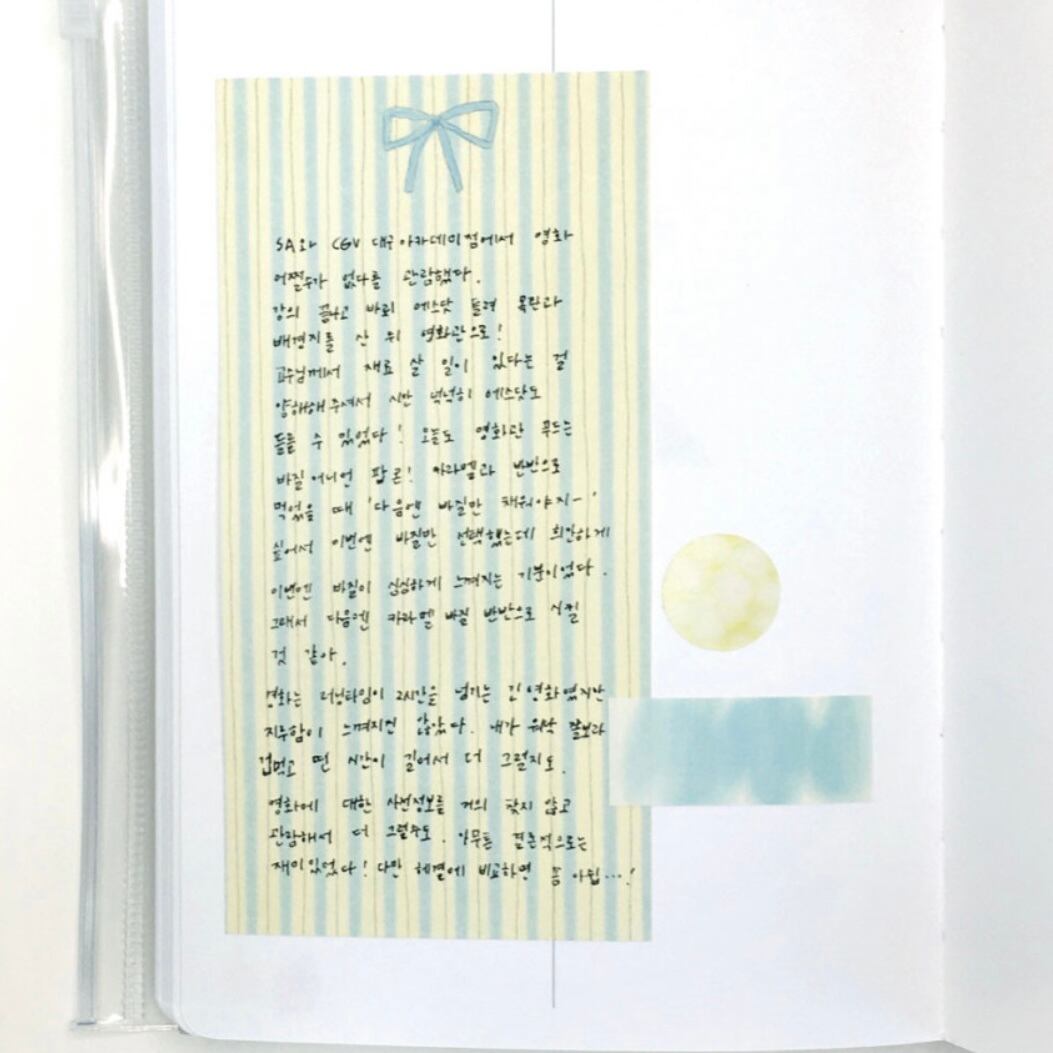 SA와 CGV 대구아카데미점에서 영화
어쩔수가 없다를 관람했다.
강의 끝나고 바로 에스닷 들려 목탄과
배경지를 산 뒤 영화관으로!
교수님께서 재료 살 일이 있다는 걸
양해해주셔서 시간 넉넉히 에스닷도
들를 수 있었다! 오늘도 영화관 푸드는
바질어니언 팝콘! 카라멜과 반반으로
먹었을 때 '다음엔 바질만 채워야지-'
싶어서 이번엔 바질만 선택했는데 희안하게
이번엔 바질이 심심하게 느껴지는 기분이었다.
그래서 다음엔 카라멜 바질 반반으로 시킬
것 같아.
영화는 러닝타임이 2시간을 넘기는 긴 영화였지만
지루함이 느껴지진 않았다. 내가 워낙 쫄보라
겁먹고 떤 시간이 길어서 더 그럴지도.
영화에 대한 사전정보를 거의 찾지 않고
관람해서 더 그럴수도. 아무튼 결론적으로는
재미있었다! 다만 헤결에 비교하면 좀 아쉽...!